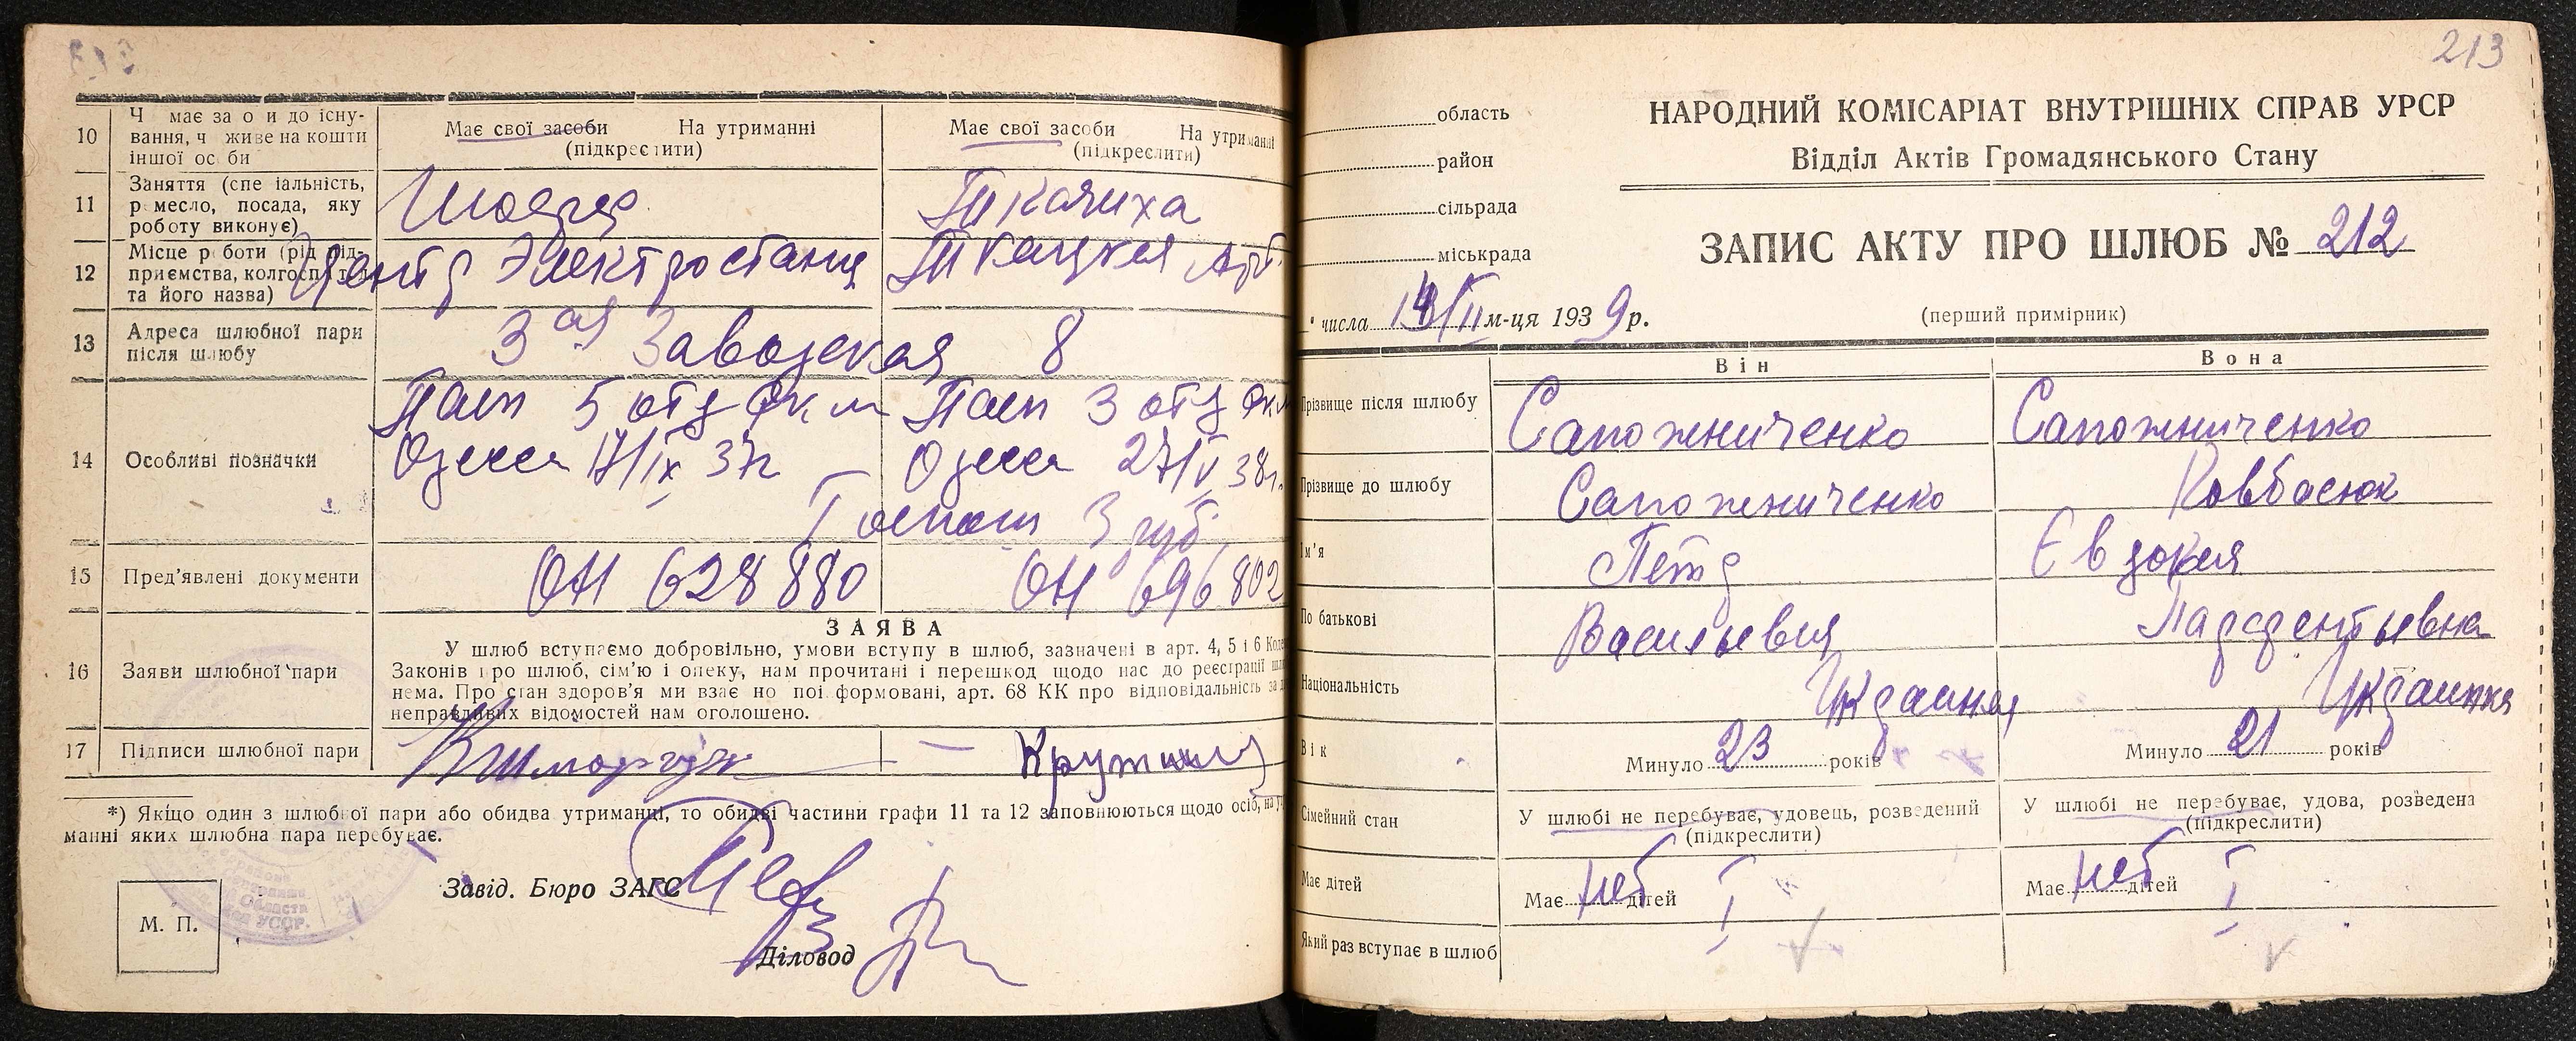 10
Ч має за о и до існу-
вання, ч живе на кошти
іншої ос би
Має свої засоби На утриманні
(підкреслити)
Має свої засоби На утриманні
(підкреслити)
11
Заняття (спе іальність,
р месло, посада, яку
роботу виконує)
Шофер
Ткачиха
12
Місце р боти (рід під-
приємства, колгоспу
та його назва)
Центр Электростанц
Ткацкая Арт.
13
Адреса шлюбної пари
після шлюбу
3ая Заводская 8
14
Особливі позначки
Пасп 5 отд Ркм
Одесса 17/IX 37г
Пасп 3 отд Ркм
Одесса 27/V 38г.
Госпош 3 руб
15
Пред'явлені документи
ОН 628880
ОН 696802
16
Заяви шлюбної пари
ЗАЯВА
У шлюб вступаємо добровільно, умови вступу в шлюб, зазначені в арт. 4, 5 і 6
Законів про шлюб, сім'ю і опеку, нам прочитані і перешкод щодо нас до реєстрації
нема. Про стан здоров'я ми взає но поі формовані, арт. 68 КК про відповідальність за
неправдивих відомостей нам оголошено.
17
Підписи шлюбної пари
*) Якщо один з шлюбної пари або обидва утриманці, то обидві частини графи 11 та 12 заповнюються щодо осіб, на
манні яких шлюбна пара перебуває.
Завід. Бюро ЗАГС
М. П.
Діловод
213
область
район
сільрада
міськрада
НАРОДНИЙ КОМІСАРІАТ ВНУТРІШНІХ СПРАВ УРСР
Відділ Актів Громадянського Стану
ЗАПИС АКТУ ПРО ШЛЮБ № 212
(перший примірник)
числа 14/II м-ця 1939р.
Він
Вона
Прізвище після шлюбу
Сапожниченко
Сапожниченко
Прізвище до шлюбу
Сапожниченко
Ковбасюк
Ім'я
Петр
Євдокия
По батькові
Васильевич
Парфентьевна
Національність
Украинец
Украинка
Вік
Минуло 23 років
Минуло 21 років
Сімейний стан
У шлюбі не перебуває, удовець, розведений
(підкреслити)
У шлюбі не перебуває, удова, розведена
(підкреслити)
Має дітей
Має нет дітей
Має нет дітей
Який раз вступає в шлюб
I
I